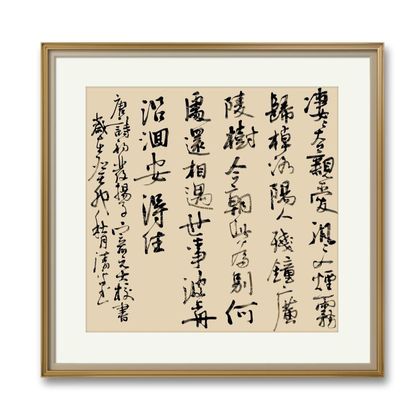 淒〻去親愛汎〻入煙霧
歸棹洛陽人殘鐘廣
陵樹今朝此為別何
處還相遇世事波上舟
沿洄安得住
唐詩初發揚子寄元大校書
歲在癸卯秋月